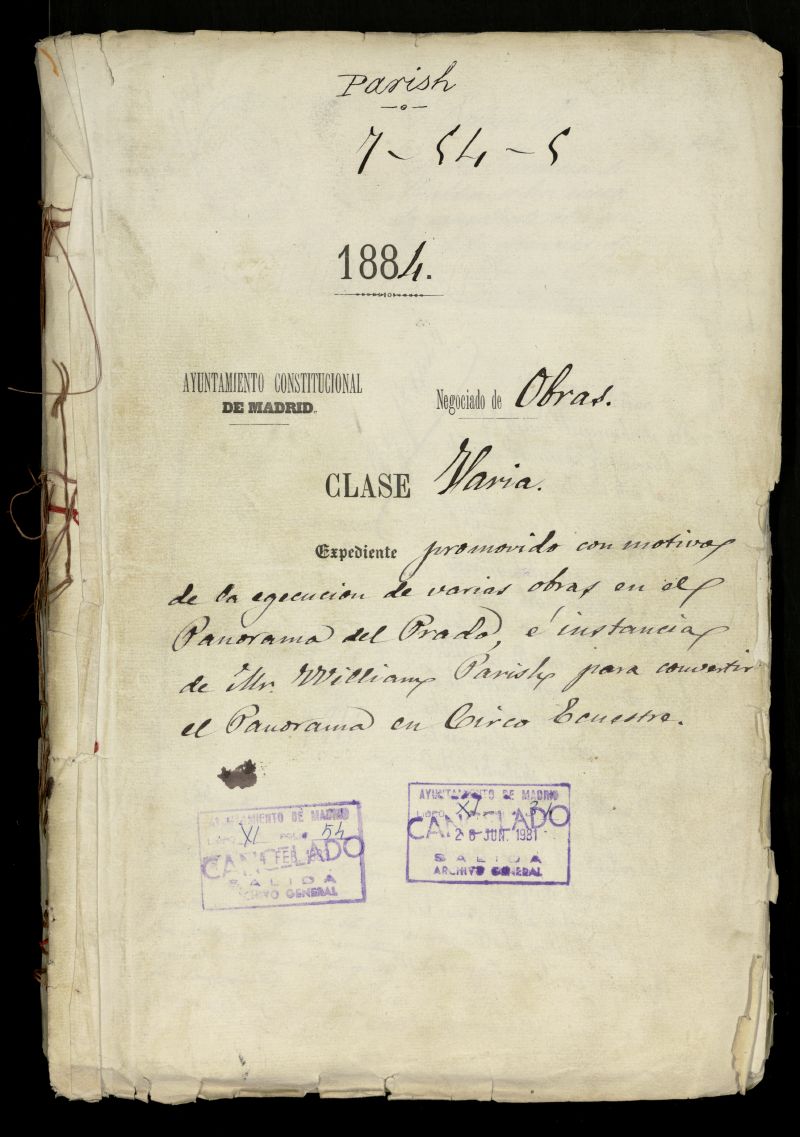 Parish
7-54-5
1884.
AYUNTAMIENTO CONSTITUCIONAL
DE MADRID.
Negociado de Obras.
CLASE Varia.
Expediente promovido con motivo
de la egecucion de varias obras en el
Panorama del Prado, é instancia
de Mr. William Parish para convertir
el Panorama en Circo Ecuestre.
AYUNTAMIENTO DE MADRID
LIBRO XI FOLIO 54
CANCELADO
FEB.
SALIDA
ARCHIVO GENERAL
AYUNTAMIENTO DE MADRID
LIBRO XI
CANCELADO
26 JUN. 1981
SALIDA
ARCHIVO GENERAL